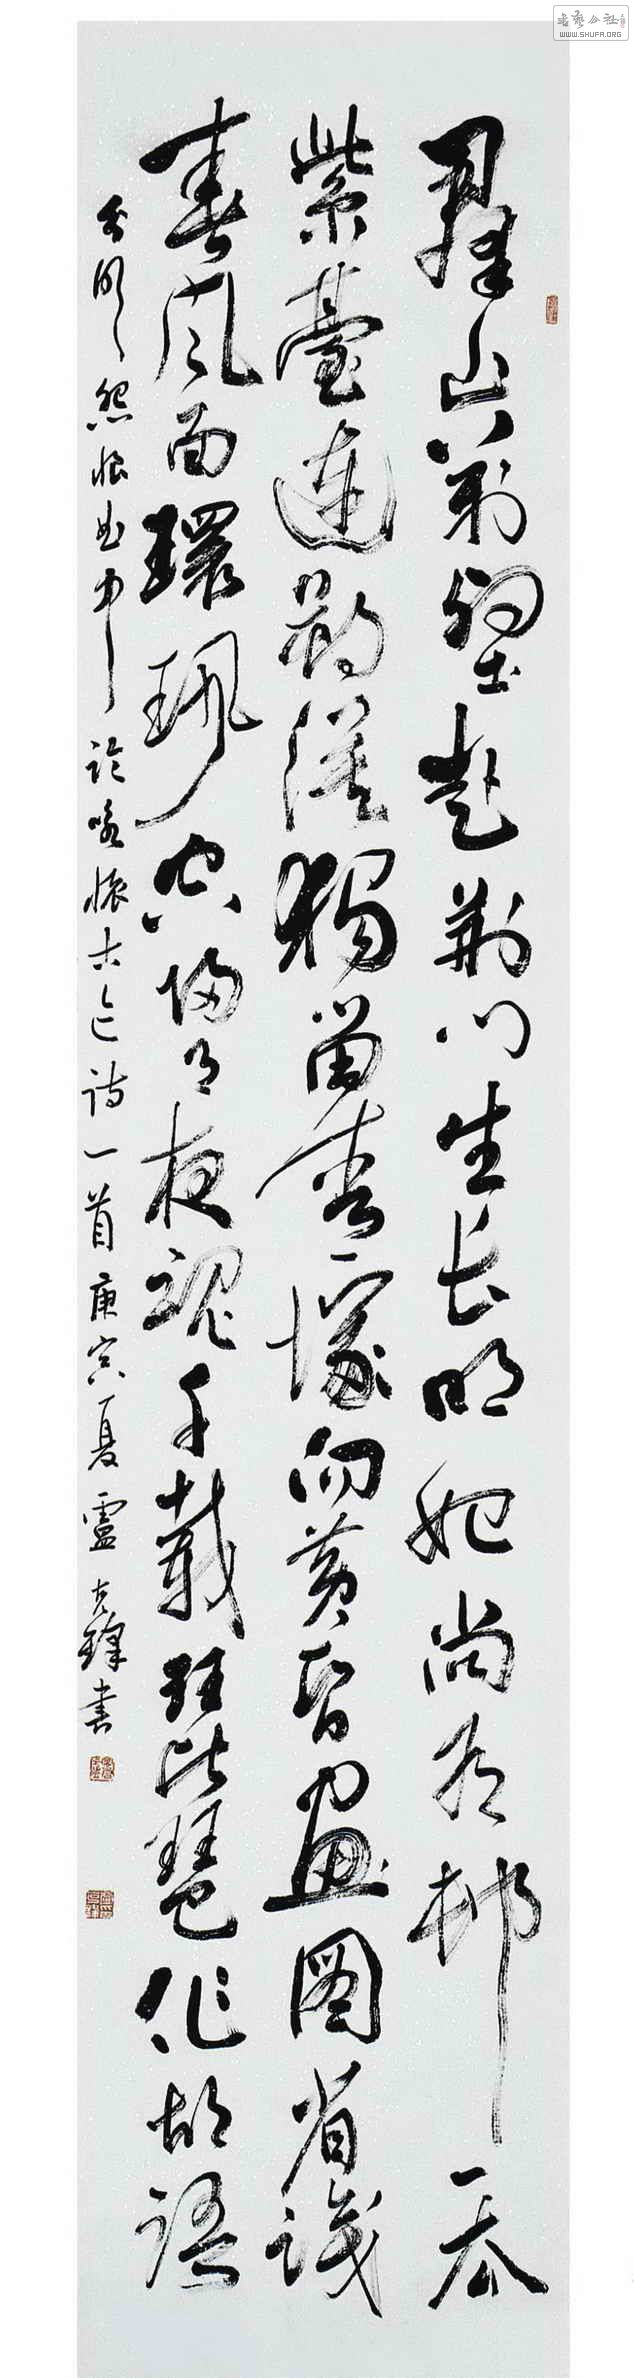 群山万壑赴荆门生长明妃尚有村一去
紫臺連朔漠獨留青塚向黄昏畫圖省識
春風面環珮空歸夜魂千載琵琶作胡語
分明怨恨曲中論詠懷古迹詩一首庚寅夏盧克鋒書
書藝公社
WWW.SHUFA.ORG